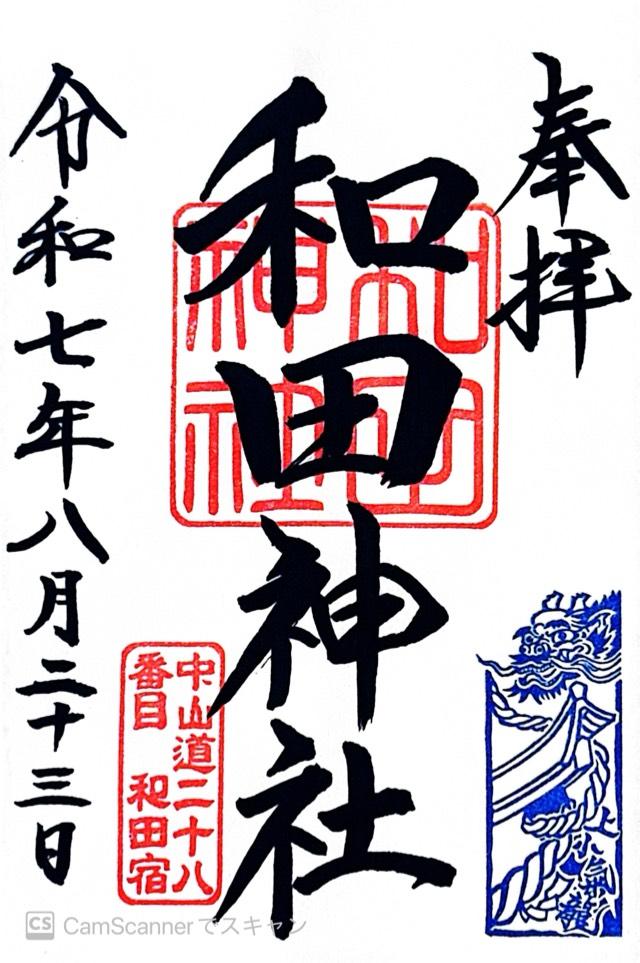 奉拝
和田神社
和田
神社
中山道二十八
番目 和田宿
令和七年八月二十三日
CS CamScannerでスキャン